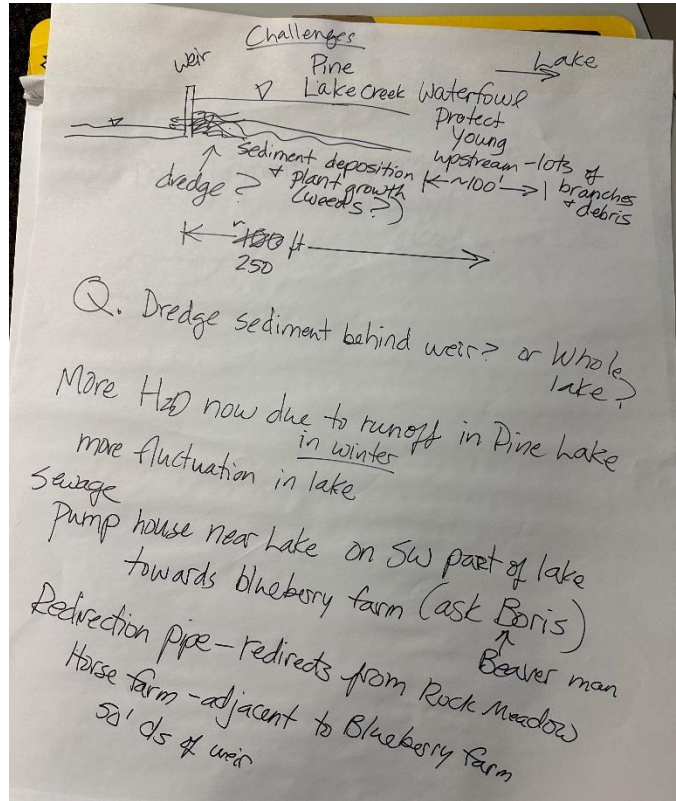 Challenges
weir
Pine
Lake Creek
Lake
Waterfowl
Protect
Young
upstream - lots of
branches
& debris
|← ~100' →|
dredge?
Sediment deposition
& plant growth
(weeds?)
~100 ft
250
Q. Dredge sediment behind weir? or Whole
lake?
More H2O now due to runoff in Pine Lake
in winter
more fluctuation in lake
Sewage
Pump house near Lake on SW part of lake
towards blueberry farm (ask Boris)
Beaver man
Redirection pipe - redirects from Rock Meadow
Horse farm - adjacent to Blueberry farm
50' ds of weir